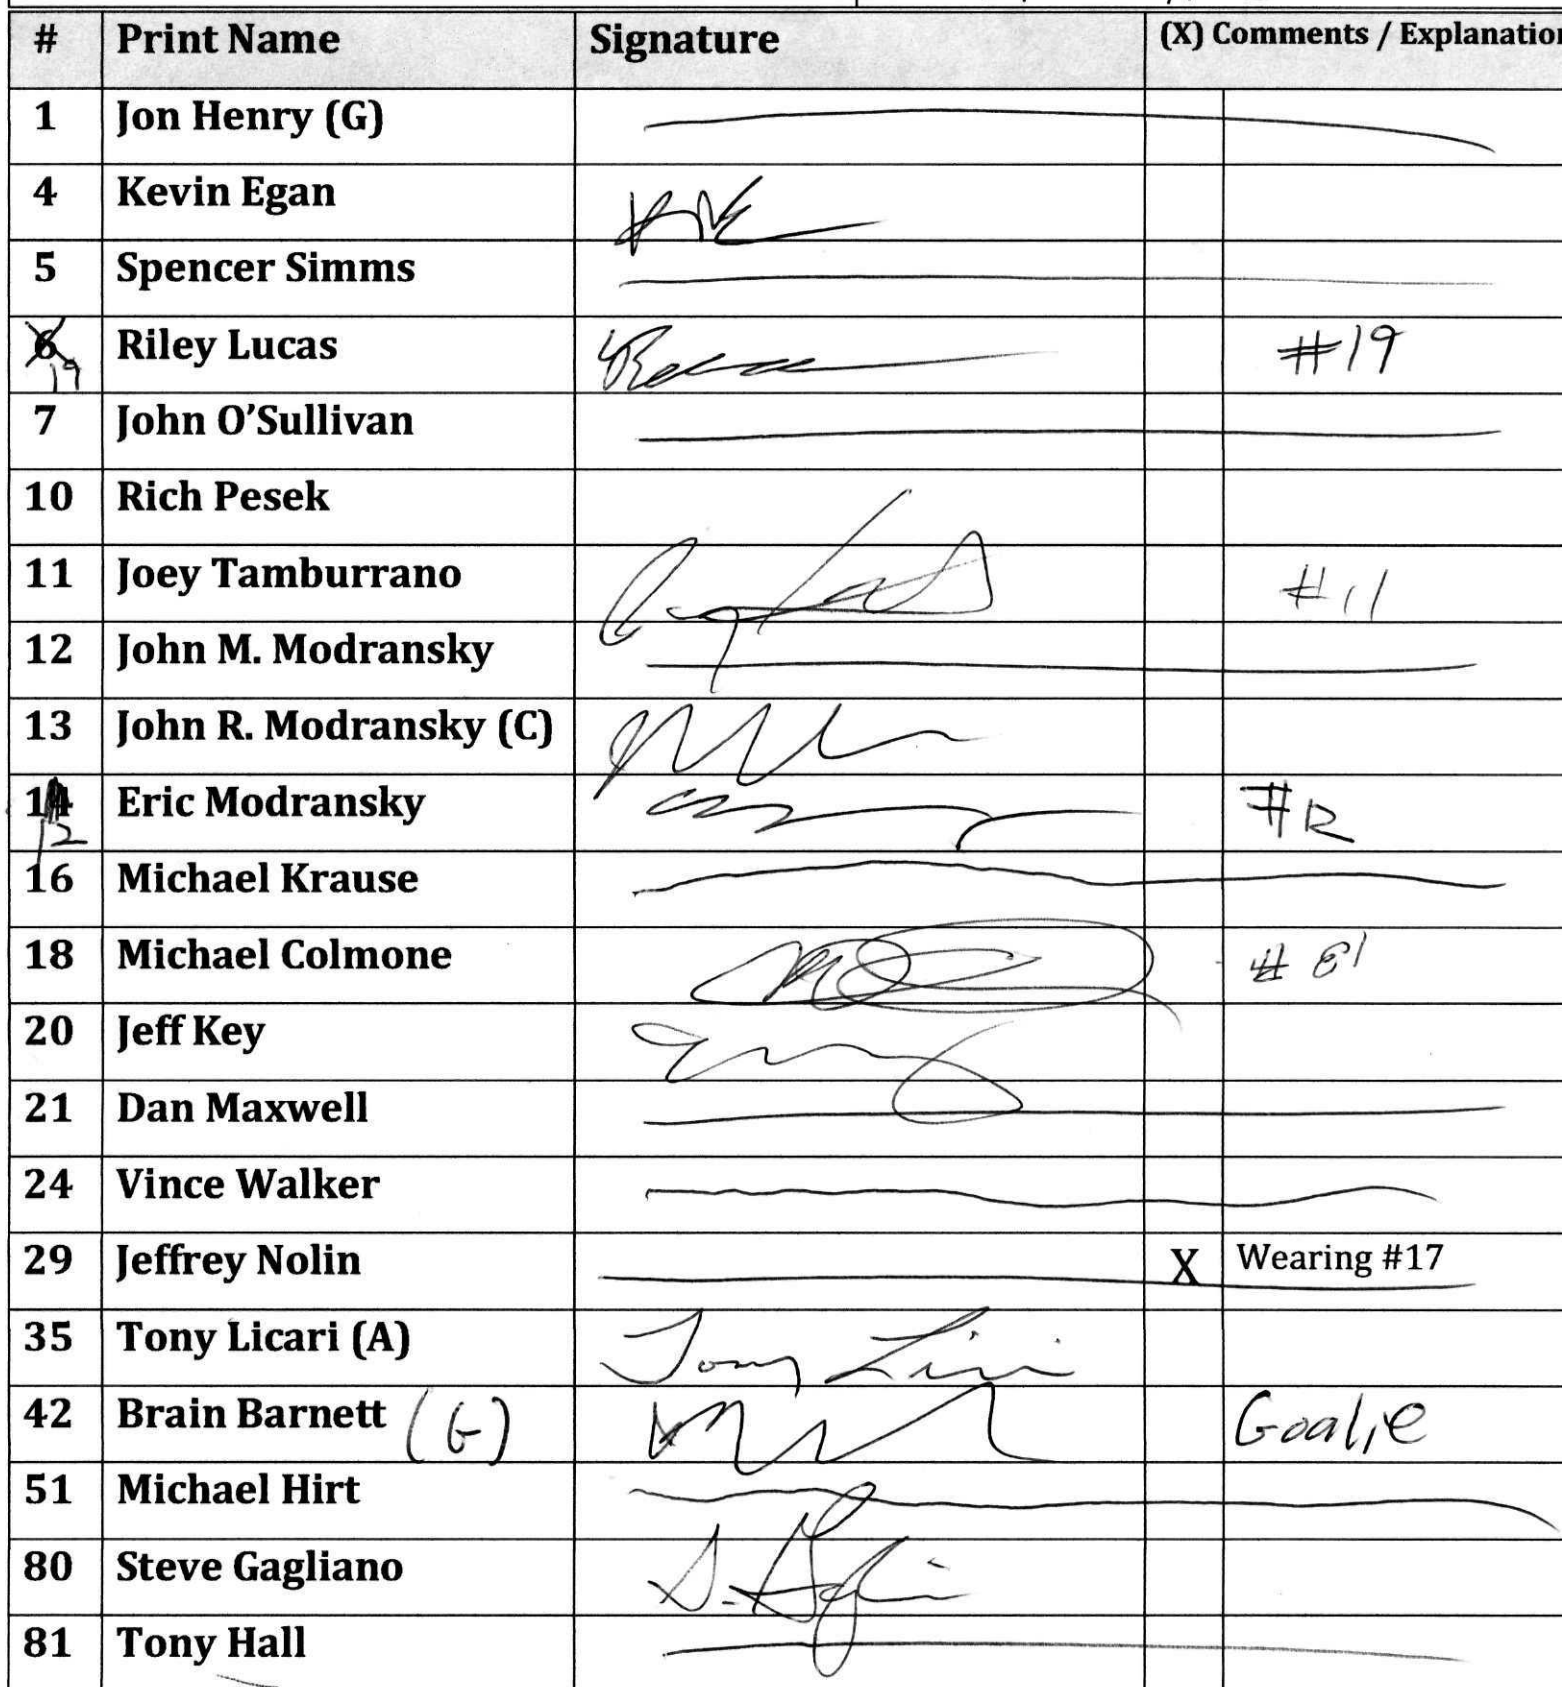 # Print Name Signature (X) Comments / Explanation
1 Jon Henry (G)
4 Kevin Egan
5 Spencer Simms
6 19 Riley Lucas #19
7 John O'Sullivan
10 Rich Pesek
11 Joey Tamburrano #11
12 John M. Modransky
13 John R. Modransky (C)
14 12 Eric Modransky #12
16 Michael Krause
18 Michael Colmone #81
20 Jeff Key
21 Dan Maxwell
24 Vince Walker
29 Jeffrey Nolin X Wearing #17
35 Tony Licari (A) Tony
42 Brain Barnett (G) Goalie
51 Michael Hirt
80 Steve Gagliano
81 Tony Hall